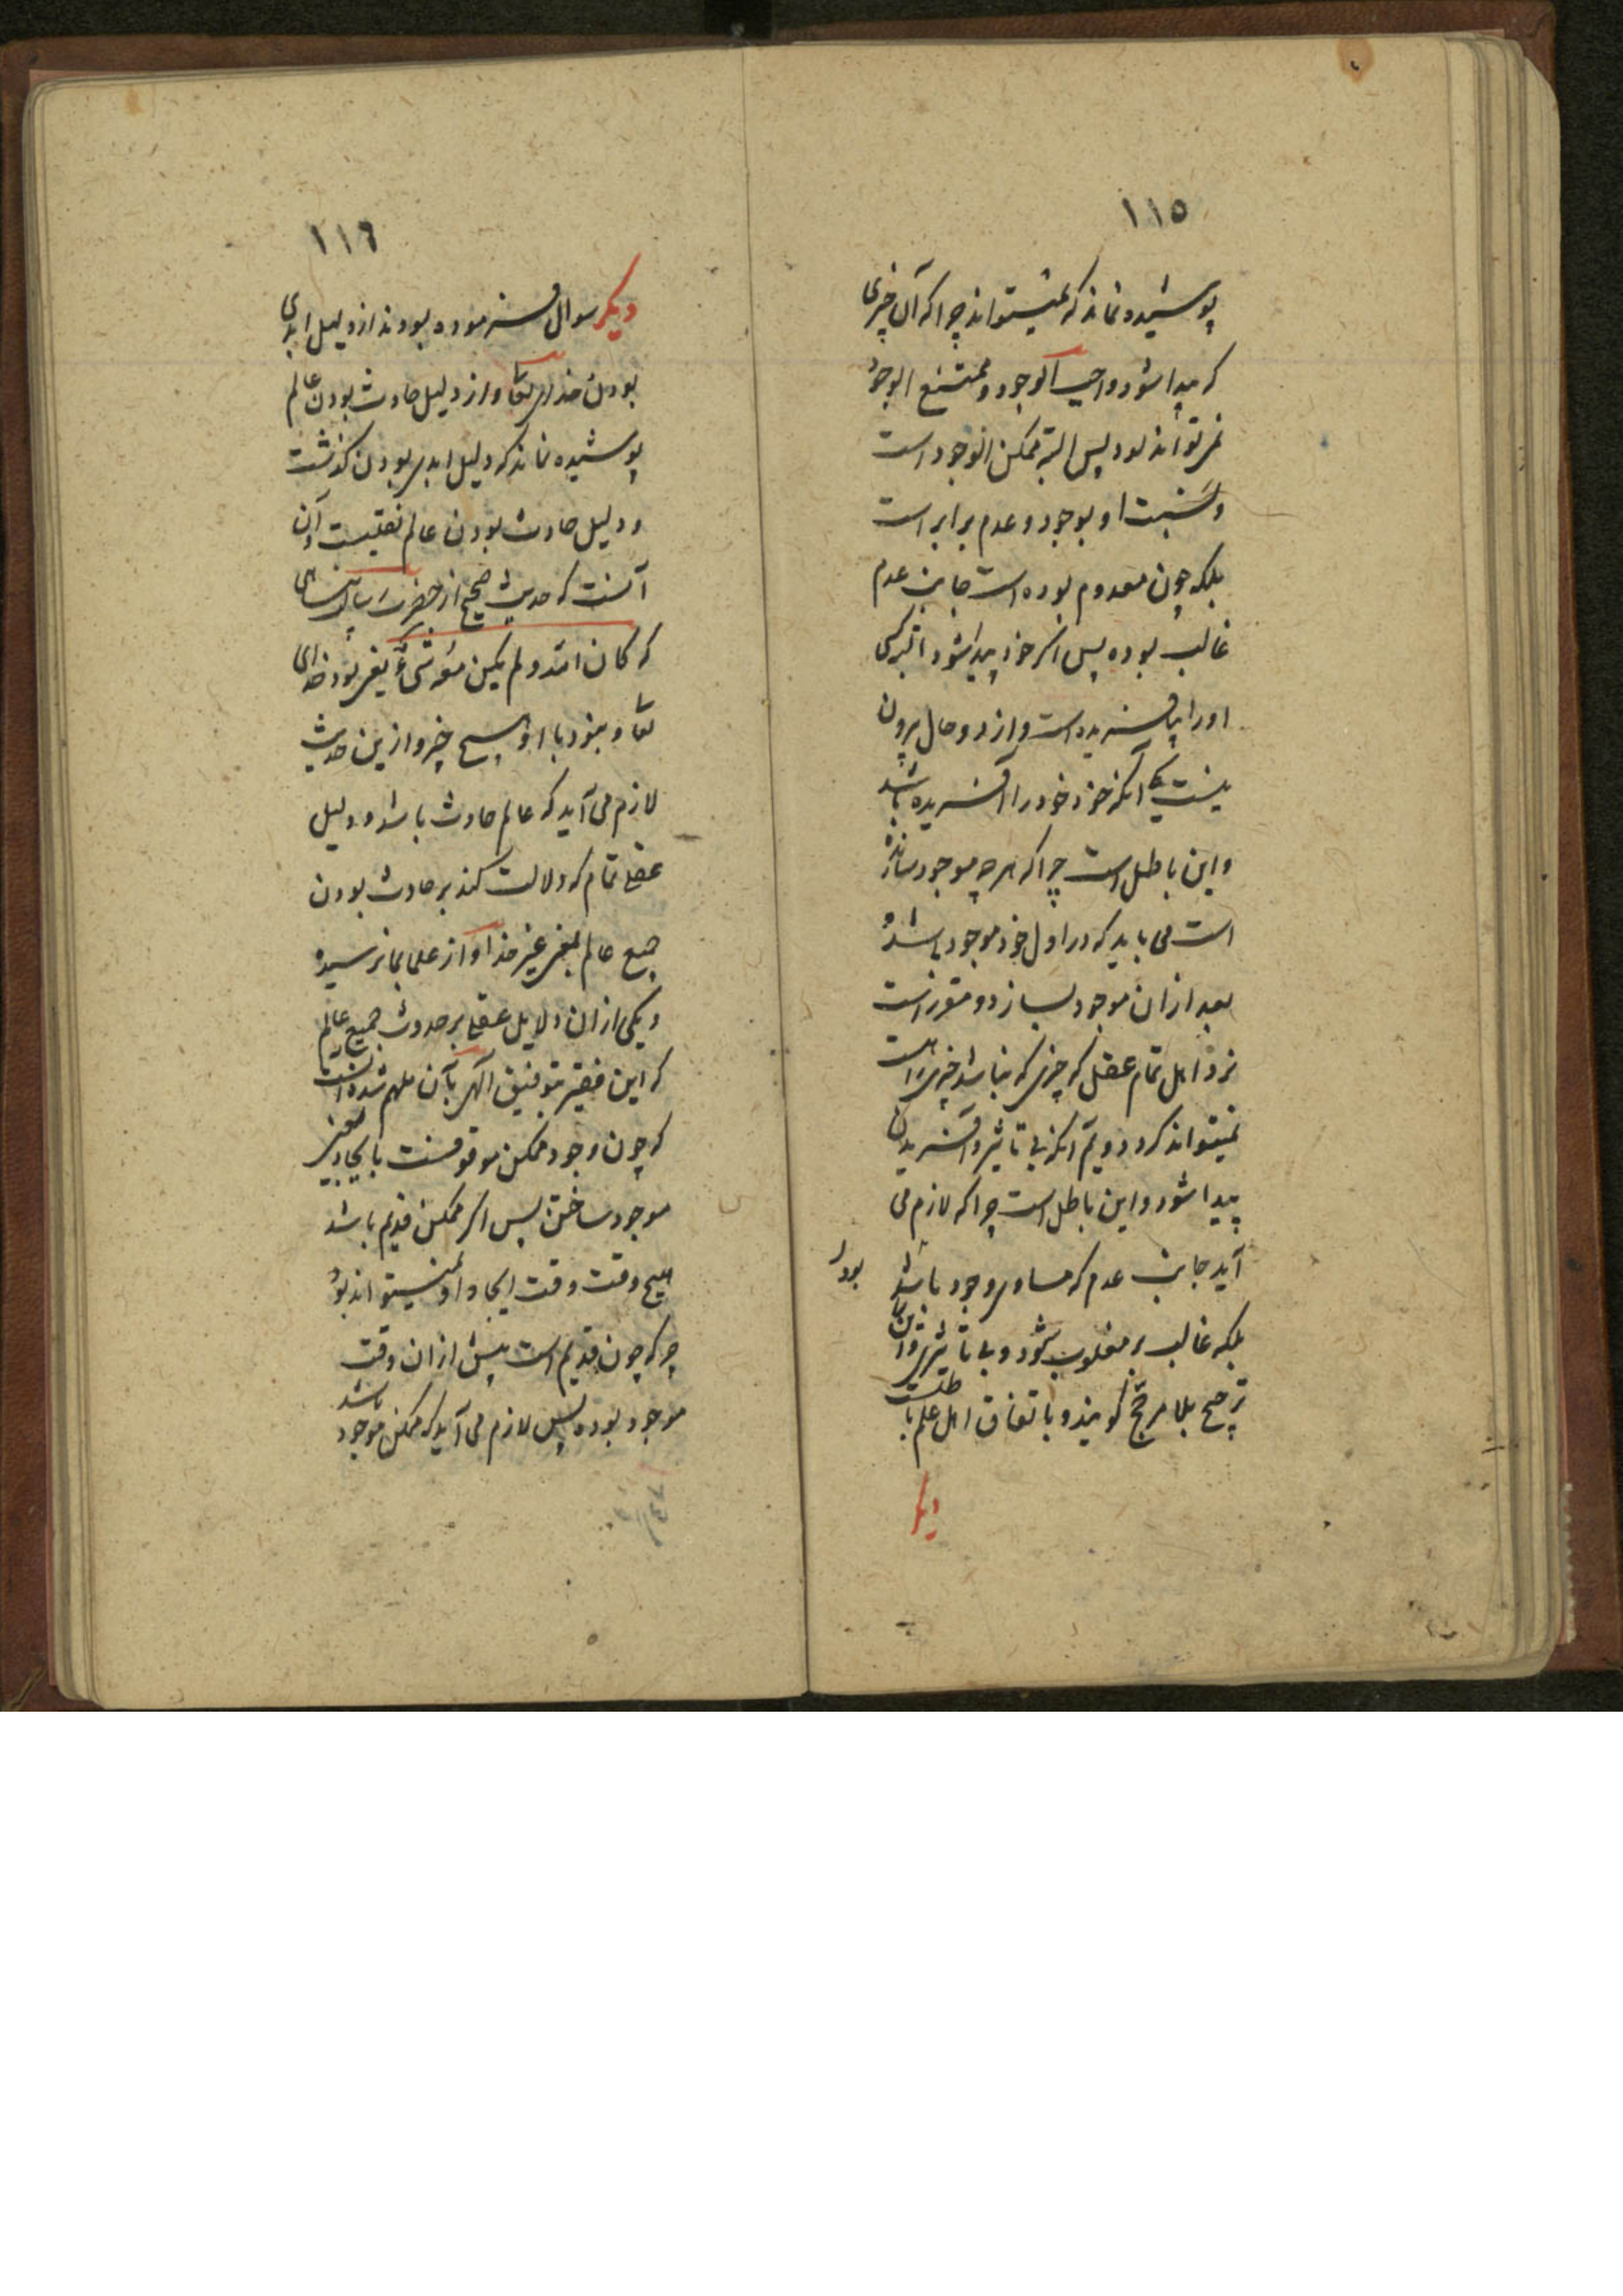 ١١٥
پوشیده نماند که نمیتواند چرا که آن چیزی
که پیدا شود واجب الوجود و ممتنع الوجود
نمی تواند بود پس البته ممکن الوجود است
و نسبت او بوجود و عدم برابر است
بلکه چون معدوم بوده است جانب عدم
غالب بوده پس اگر خود پیدا شود
اورا نیافریده است و از دو حال بیرون
نیست یکی آنکه خود خود را آفریده باشد
و این باطل است چرا که هر چه موجود سازنده
است می باید که در اول خود موجود باشد و
بعد از ان موجود بسازد و مقرر است
نزد اهل تمام عقل که چیزی که نباشد چیزی را هست
نمیتواند کرد دویم آنکه بی تاثیر و آفریدن
پیدا شود و این باطل است چرا که لازم می
آید جانب عدم که مساوی وجود باشد
بودا
بلکه غالب بر مغلوب شود و بی تاثیر و این را
ترجیح بلا مرجّح گویند و باتفاق اهل علم باطلست
دیگر
١١٦
دیگر سوال فرموده بودند از دلیل ابدی
بودن خدای تعا و از دلیل حادث بودن عالم
پوشیده نماند که دلیل ابدی بودن گذشت
و دلیل حادث بودن عالم نقلیست و آن
آنست که حدیث صحیح از حضرت رسالت پناهی
که کان الله و لم یکن معه شیءٌ یعنی بود خدای
تعا و نبود با او هیچ چیز و ازین حدیث
لازم می آید که عالم حادث باشد و دلیل
عقلی تمام که دلالت کند بر حادث بودن
جمیع عالم یعنی غیر خدا و از علما بما نرسیده
و یکی از ان دلایل عقلی بر حدوث جمیع عالم
که این فقیر بتوفیق الهی بآن ملهم شده انست
که چون وجود ممکن موقوفست بایجاد یعنی
موجود ساختن پس اگر ممکن قدیم باشد
هیچ وقت وقت ایجاد او نمیتواند بود
چرا که چون قدیم است پیش از ان وقت
موجود بوده پس لازم می آید که ممکن موجود باشد